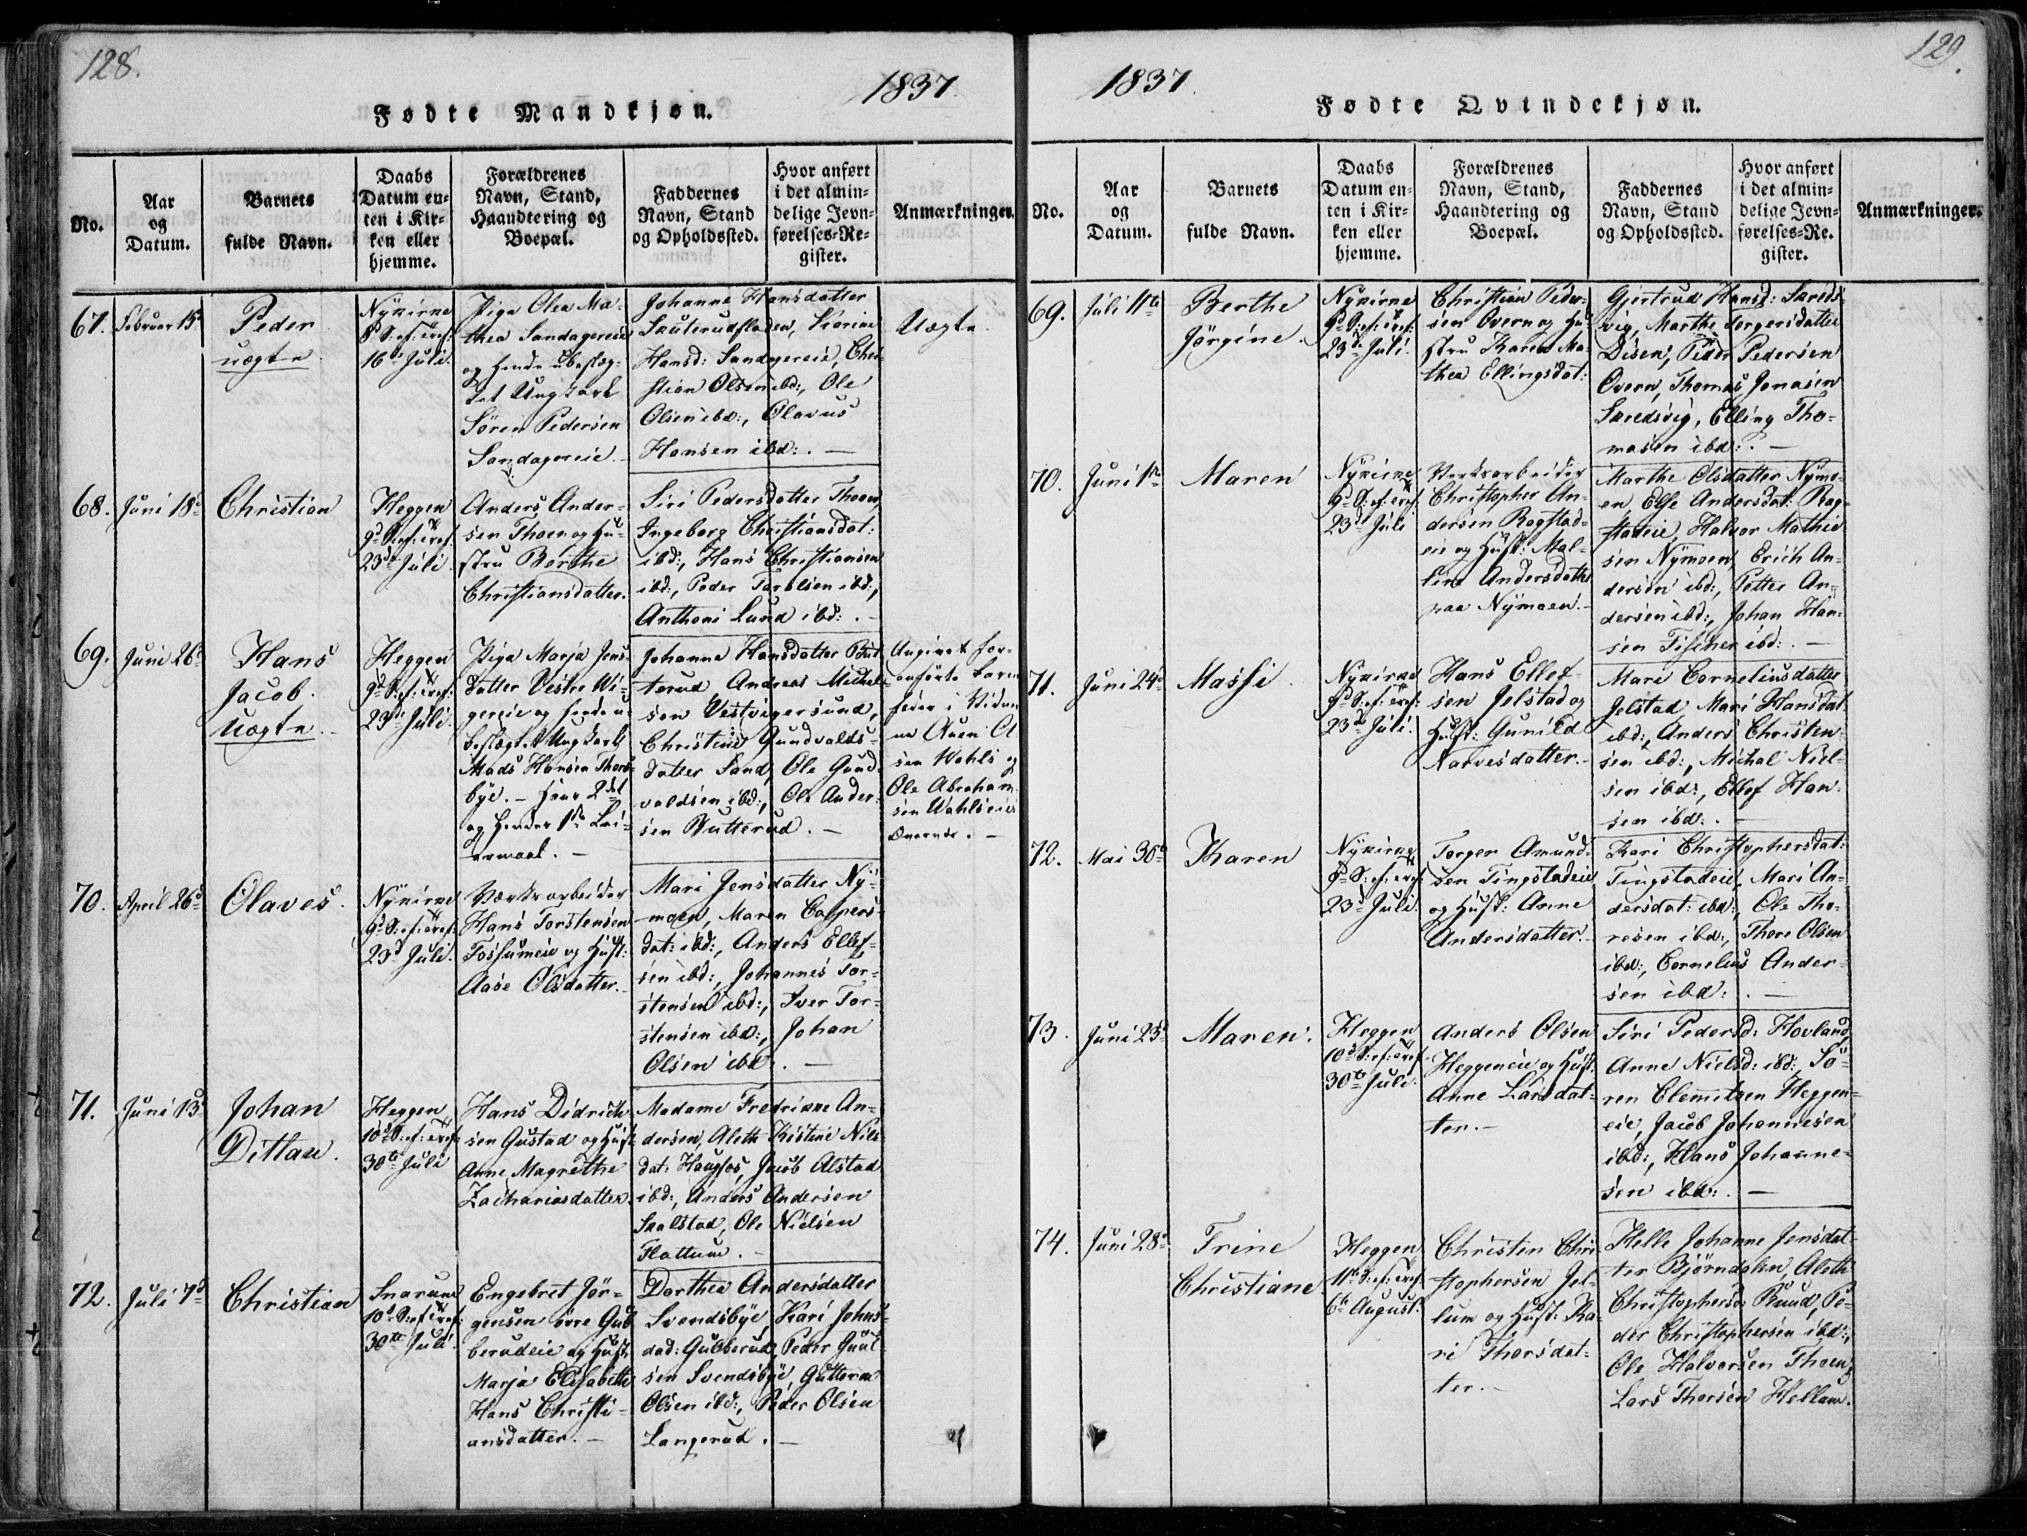 128.
1837.
Fødte Mandkjøn.
No.
Aar
og
Datum.
Barnets
fulde Navn.
Daabs
Datum en-
ten i Kir-
ken eller
hjemme.
Forældrenes
Navn, Stand,
Haandtering og
Boepæl.
Faddernes
Navn, Stand
og Opholdssted.
Hvor anført
i det almin-
delige Jevn-
førelses-Re-
gister.
Anmærkninger.
67.
Februar 15d
Peder
uægte
Nykirke
8d S: ef: Tref:
16de Juli.
Pige Olea Ma-
thea Sandagereie
og hende ubeslæg-
tet Ungkarl
Søren Pedersen
Sandagereie.
Johanne Hansdatter
Sauterudfladen, Karine
Hansd: Sandagereie, Chri-
stian Olsen ibd:, Ole
Olsen ibd:, Olavus
Hansen ibd: . —
Uægte
68.
Juni 18d
Christian
Heggen
9d S: ef: Tref:
23de Juli.
Anders Ander-
sen Thoen og Hu-
stru Berthe
Christiansdatter.
Siri Pedersdatter Thoen,
Ingeborg Christiansdat:
ibd:, Hans Christiansen
ibd:, Peder Tarelsen ibd:,
Anthoni Lund ibd: . —
69.
Juni 26d
Hans
Jacob.
Uægte.
Heggen
9d S: ef: Tref:
23de Juli.
Pige Marja Jens-
datter Vestre Vi-
gereie og hende u-
beslægtet Ungkarl
Mads Hansen Thors-
bye. — Hans 2det
og hendes 1ste Lei-
ermaal. —
Johanne Hansdatter But-
terud, Andreas Mickel-
sen Vestvigersund,
Christine Gundvalds-
datter Sand, Ole Gund-
valdsen ibd:, Ole Ander-
sen Butterud. —
Angivet for-
anførte Barne-
fader i Vidner-
ne Auen Ol-
sen Wahls og
Ole Abraham-
sen Wahlseies
Overvær. —
70.
April 26d
Olaves.
Nykirke
9d S: ef: Tref:
23d Juli.
Værksarbeider
Hans Torstensen
Fossumeie og Hust:
Aase Olsdatter.
Mari Jensdatter Ny-
moen, Maren Caspers-
dat: ibd:, Anders Ellef-
sen ibd:, Johannes Tor-
stensen ibd:, Iver Tor-
stensen ibd:, Johan
Olsen ibd: . —
71.
Juni 13d
Johan
Ditlau.
Heggen
10d S: ef: Tref:
30te Juli
Hans Didrick-
sen Gustad og Hust:
Anne Magrethe
Zachariasdatter.
Madame Fredrikke An-
dersen, Aleth Kistine Nils-
dat: Haugfos, Jacob Alstad
ibd:, Anders Andersen
Skalstad, Ole Nielsen
Flattum. —
72.
Juli 7d
Christian
Snarum
10d S: ef Tref:
30te Juli.
Engebret Jør-
gensen øvre Gub-
berudeie og Hust:
Marja Elisabethe
Hans Christi-
ansdatter. —
Dorthea Andersdatter
Svendsbye, Kari Johns-
dad: Gubberud, Peder Guul-
sen Svendsbye, Guttorm
Olsen ibd:, Peder Olsen
Langerud. —
129.
1837.
Fødte Qvindekjøn.
No.
Aar
og
Datum.
Barnets
fulde Navn.
Daabs
Datum en-
ten i Kir-
ken eller
hjemme.
Forældrenes
Navn, Stand,
Haandtering og
Boepæl.
Faddernes
Navn, Stand
og Opholdssted.
Hvor anført
i det almin-
delige Jevn-
førelses-Re-
gister.
Anmærkninger.
69.
Juli 11te
Berthe
Jørgine.
Nykirke
9d S: ef: Tref:
23d Juli.
Christian Peder-
sen Overn og Hu-
stru Karen Ma-
thea Ellingsdat:
Gjertrud Hansd: Skreds-
vig, Marthe Torgersdatter
Disen, Peder Pedersen
Overn, Thomas Jonasen
Skredsvig, Elling Tho-
masen ibd: . —
70.
Juni 1ste
Maren
Nykirke
9d S: ef: Tref:
23d Juli
Værksarbeider
Christopher An-
dersen Bogstad-
eie og Hust: Mal-
line Andersdatter
paa Nymoen. —
Marthe Olsdatter Nymo-
en, Else Andersdat: Bog-
stadeie, Halvor Mathie-
sen Nymoen, Erich An-
dersen ibd:, Petter An-
dersen ibd:, Johan Han-
sen Fischer ibd: . —
71.
Juni 24d
Massi.
Nykirke
9d S: ef: Tref:
23d Juli.
Hans Ellef-
sen Jelstad og
Hust: Gunild
Narvesdatter. —
Mari Corneliusdatter
Jelstad, Mari Hansdat
ibd:, Anders Christen-
sen ibd:, Michal Niel-
sen ibd:, Ellef Han-
sen ibd: . —
72.
Mai 30te
Karen
Nykirke
9d S: ef: Tref:
23d Juli.
Torger Amund-
sen Tingstadeie
og Hust: Anne
Andersdatter.
Kari Christophersdat:
Tingstadeie, Mari An-
dersdat: ibd:, Ole Tho-
resen ibd:, Thore Olsen
ibd:, Cornelius Ander-
sen ibd: . —
73.
Juni 25d
Maren.
Heggen
10d S: ef: Tref:
30te Juli.
Anders Olsen
Heggeneie og Hust:
Anne Larsdat-
ter. —
Siri Pedersd: Hovland,
Anne Nielsd: ibd:, Sø-
ren Clemetsen Heggen-
eie, Jacob Johannesen
ibd:, Hans Johanne-
sen ibd: . —
74.
Juni 28d
Trine
Christiane
Heggen
11te S: ef: Tref:
6te August.
Christen Chri-
stophersen Jel-
lum og Hust: Ka-
ri Thorsdat-
ter. —
Helle Johanne Jensdat-
ter Bjørndalen, Aleth
Christophersd: Ruud, Pe-
der Christophersen ibd:,
Ole Halvorsen Thoen,
Lars Thorsen Hellum.